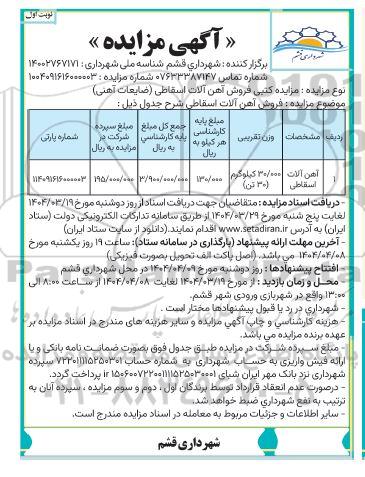 نوبت اول
شهرداری قشم
« آگهی مزایده »
برگزار کننده : شهرداری قشم شناسه ملی شهرداری : ۱۴۰۰۲۷۶۷۱۷۱
شماره تماس ۰۷۶۳۳۳۸۷۱۴۷ شماره مزایده : ۱۰۰۴۰۹۱۶۱۶۰۰۰۰۰۳
نوع مزایده : مزایده کتبی فروش آهن آلات اسقاطی (ضایعات آهنی)
موضوع مزایده : فروش آهن آلات اسقاطی شرح جدول ذیل :
ردیف مشخصات وزن تقریبی مبلغ پایه کارشناسی هر کیلو به ریال جمع کل مبلغ پایه کارشناسی به ریال مبلغ سپرده شرکت در مزایده به ریال شماره پارتی
۱ آهن آلات اسقاطی ۳۰/۰۰۰ کیلوگرم (۳۰ تن) ۱۳۰/۰۰۰ ۳/۹۰۰/۰۰۰/۰۰۰ ۱۹۵/۰۰۰/۰۰۰ ۱۱۴۰۹۱۶۱۶۰۰۰۰۰۳
- دریافت اسناد مزایده : متقاضیان جهت دریافت اسناد از روز دوشنبه مورخ ۱۴۰۴/۰۳/۱۹
لغایت پنج شنبه مورخ ۱۴۰۴/۰۳/۲۹ از طریق سامانه تدارکات الکترونیکی دولت (ستاد
ایران) به آدرس www.setadiran.ir اقدام نمایند.(دانلود از سایت ستاد ایران)
- آخرین مهلت ارائه پیشنهاد (بارگذاری در سامانه ستاد): ساعت ۱۹ روز یکشنبه مورخ
۱۴۰۴/۰۴/۰۸ می باشد. (اصل پاکت الف تحویل بصورت فیزیکی)
- افتتاح پیشنهادها : روز دوشنبه مورخ ۱۴۰۴/۰۴/۰۹ در محل شهرداری قشم
- محل و زمان بازدید : از مورخ ۱۴۰۴/۰۳/۱۹ لغایت ۱۴۰۴/۰۴/۰۸ از ساعت ۸:۰۰ الی
۱۳:۰۰ واقع در شهربازی ورودی شهر قشم.
- شهرداری در رد یا قبول پیشنهادها مختار است .
- هزینه کارشناسی و چاپ آگهی مزایده و سایر هزینه های مندرج در اسناد مزایده بر
عهده برنده مزایده می باشد.
- مبلغ سپرده شرکت در مزایده طبق جدول فوق بصورت ضمانت نامه بانکی و یا
ارائه فیش واریزی به حساب شهرداری به شماره حساب ۷۲۲۰۱۱۱۵۲۵۰۳۰۱ سپرده
شهرداری نزد بانک مهر ایران شبای ir ۱۵۰۶۰۰۷۲۲۰۰۱۱۱۵۲۵۰۳۰۰۰۱ پرداخت گردد.
- درصورت عدم انعقاد قرارداد توسط برندگان اول ، دوم و سوم مزایده ، سپرده آنان به
ترتیب به نفع شهرداری ضبط خواهد شد.
- سایر اطلاعات و جزئیات مربوط به معامله در اسناد مزایده مندرج است.
شهرداری قشم